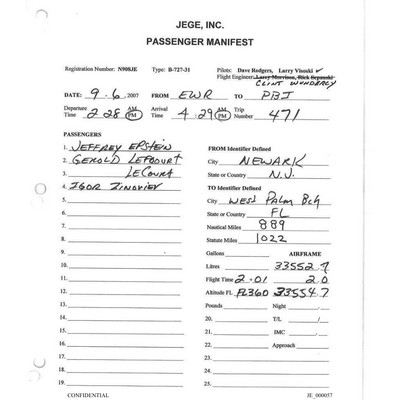 JEGE, INC.
PASSENGER MANIFEST
Registration Number: N908JE Type: B-727-31 Pilots: Dave Rodgers, Larry Visoski ✓
Flight Engineer: Larry Morrison, Rick
CLINT
DATE 9-6, 2007 FROM EWR TO PBI
Departure Time 2:28 PM Arrival Time 4:29 PM Trip Number 471
PASSENGERS
1. JEFFREY EPSTEIN
2. GERALD LEFCOURT
3. LECOURT
4. IGOR ZINOVIEV
5.
6.
7.
8.
9.
10.
11.
12.
13.
14.
15.
16.
17.
18.
19.
FROM Identifier Defined
City NEWARK
State or Country N.J.
TO Identifier Defined
City WEST PALM BCH
State or Country FL
Nautical Miles 889
Statute Miles 1022
Gallons AIRFRAME
Litres 33552.7
Flight Time 2-01 2.0
Altitude FL FL360 33554.7
Pounds Night
20. T/L /
21. IMC
22. Approach
23.
24.
25.
CONFIDENTIAL JE_000057